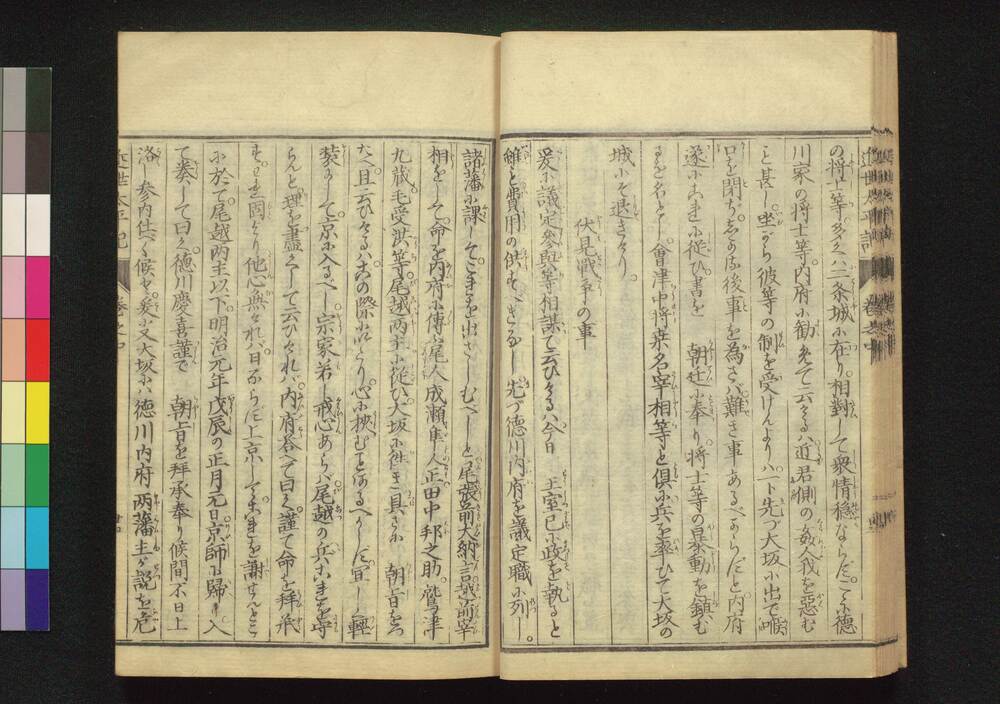 の将士等多くハ二条城に在り。相對して衆情穏ならだ。こゝに徳
川家の将士等、内府に勧めて云くるハ近君側の姦人我を惡む
と甚し。坐がら彼等の制を受けんより、一ト先づ大坂に出で喉
口を閉ぢ、しかふ後事を為さバ難き事あるべからだと内府
遂にこれに従ひ書を 朝廷に奉り、将士等の暴動を鎮む
るを名とし、會津中将桒名宰相等と倶に兵を率ひて大坂の
城にぞ退きけり。
伏見戦争の事
爰に議定參與等相謀て云ひけるハ今日 王室已に政を執ると
雖とも費用の供すべきなし。先づ徳川内府を議定職に列し。
諸藩に課してこれを出さしむべしと尾張前大納言越前宰
相をして命を内府に傳ふ。尾人成瀬隼人正田中邦之助。鷲津
九蔵毛受洪等。尾越両主に従ひ大坂に徃き具さに 朝旨をつ
たへ且云ひけるハ此の際にいたり心に挟むことあるべからだ宜しく輕
装にして京に入るべし。宗家若し戒心あらバ尾越の兵これを守
らんと理を盡くして云ひけれバ内府答へて曰く謹て命を拜承
す。もと固より他心無けれバ日ならだ上京してこれを謝せんとこ
に於て尾越両主以下。明治元年戊辰の正月元日京師に歸り入
て奏して曰く。徳川慶喜謹で 朝旨を拜承奉り候間不日上
洛し参内仕べく候や。爰に又大坂にハ徳川内府 両藩主が説を危
近世太平記 巻之中 廿四